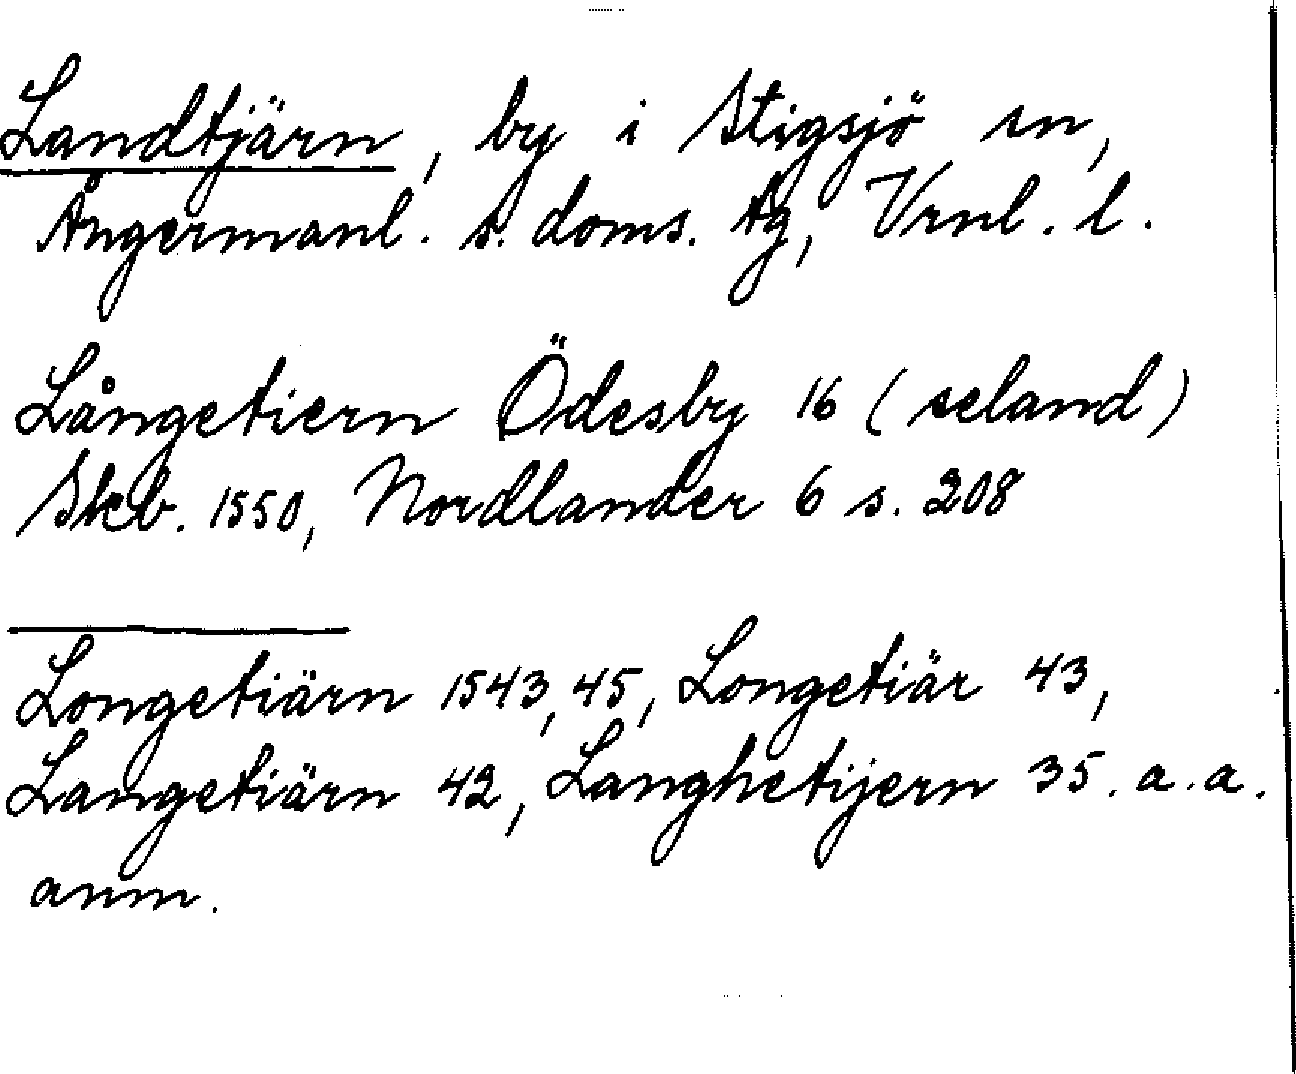 Landtjärn, by i Stigsjö sn,
Ångermanl. s. doms. tg, Vrnl. l.
Långetiern Ödesby 16 (seland)
Skb. 1550, Nordlander 6 s. 208
Longetiärn 1543, 45, Longetiär 43,
Langetiärn 42, Langhetijern 35. a.a.
anm.